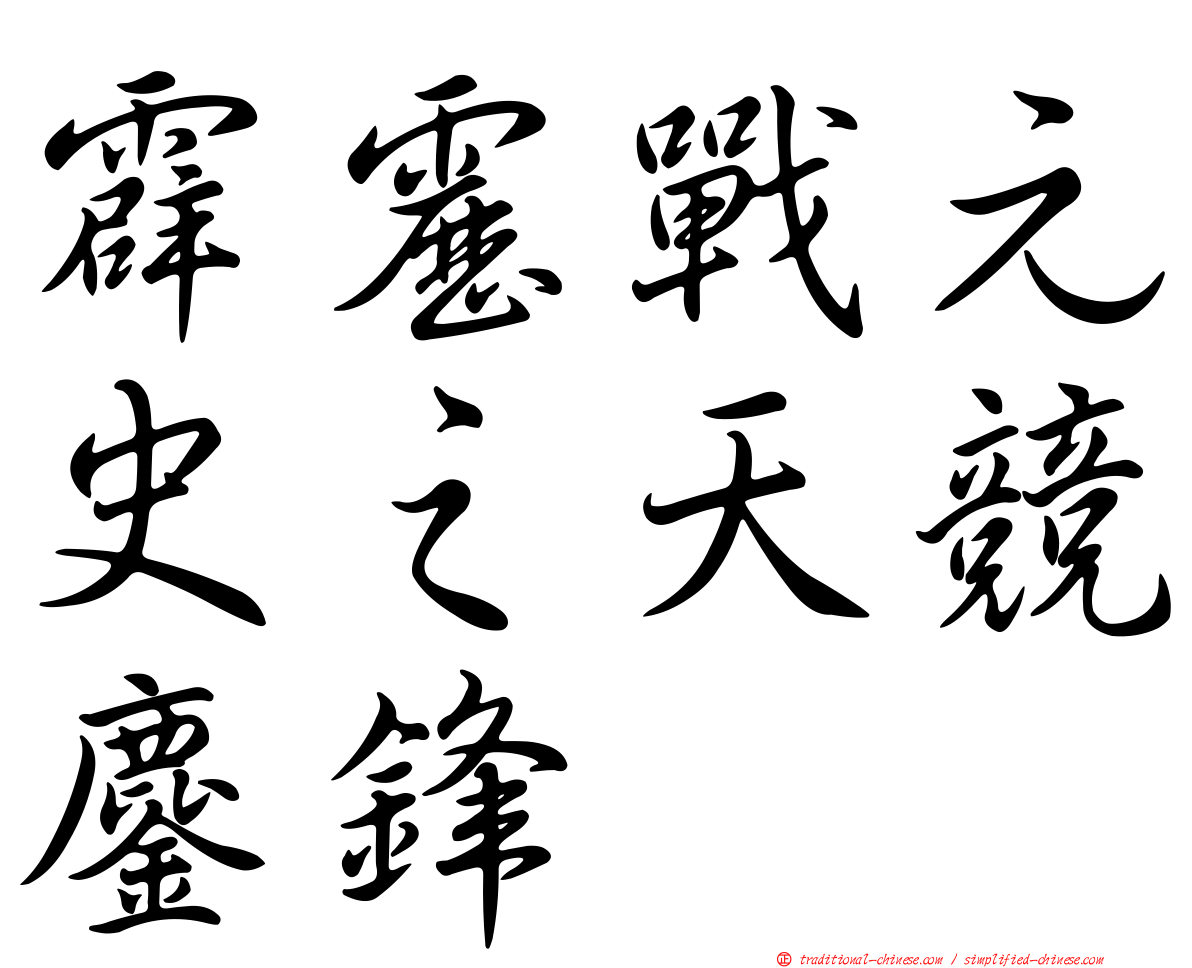 霹靂戰元
史之天競
鏖鋒
㊣ traditional-chinese.com / simplified-chinese.com